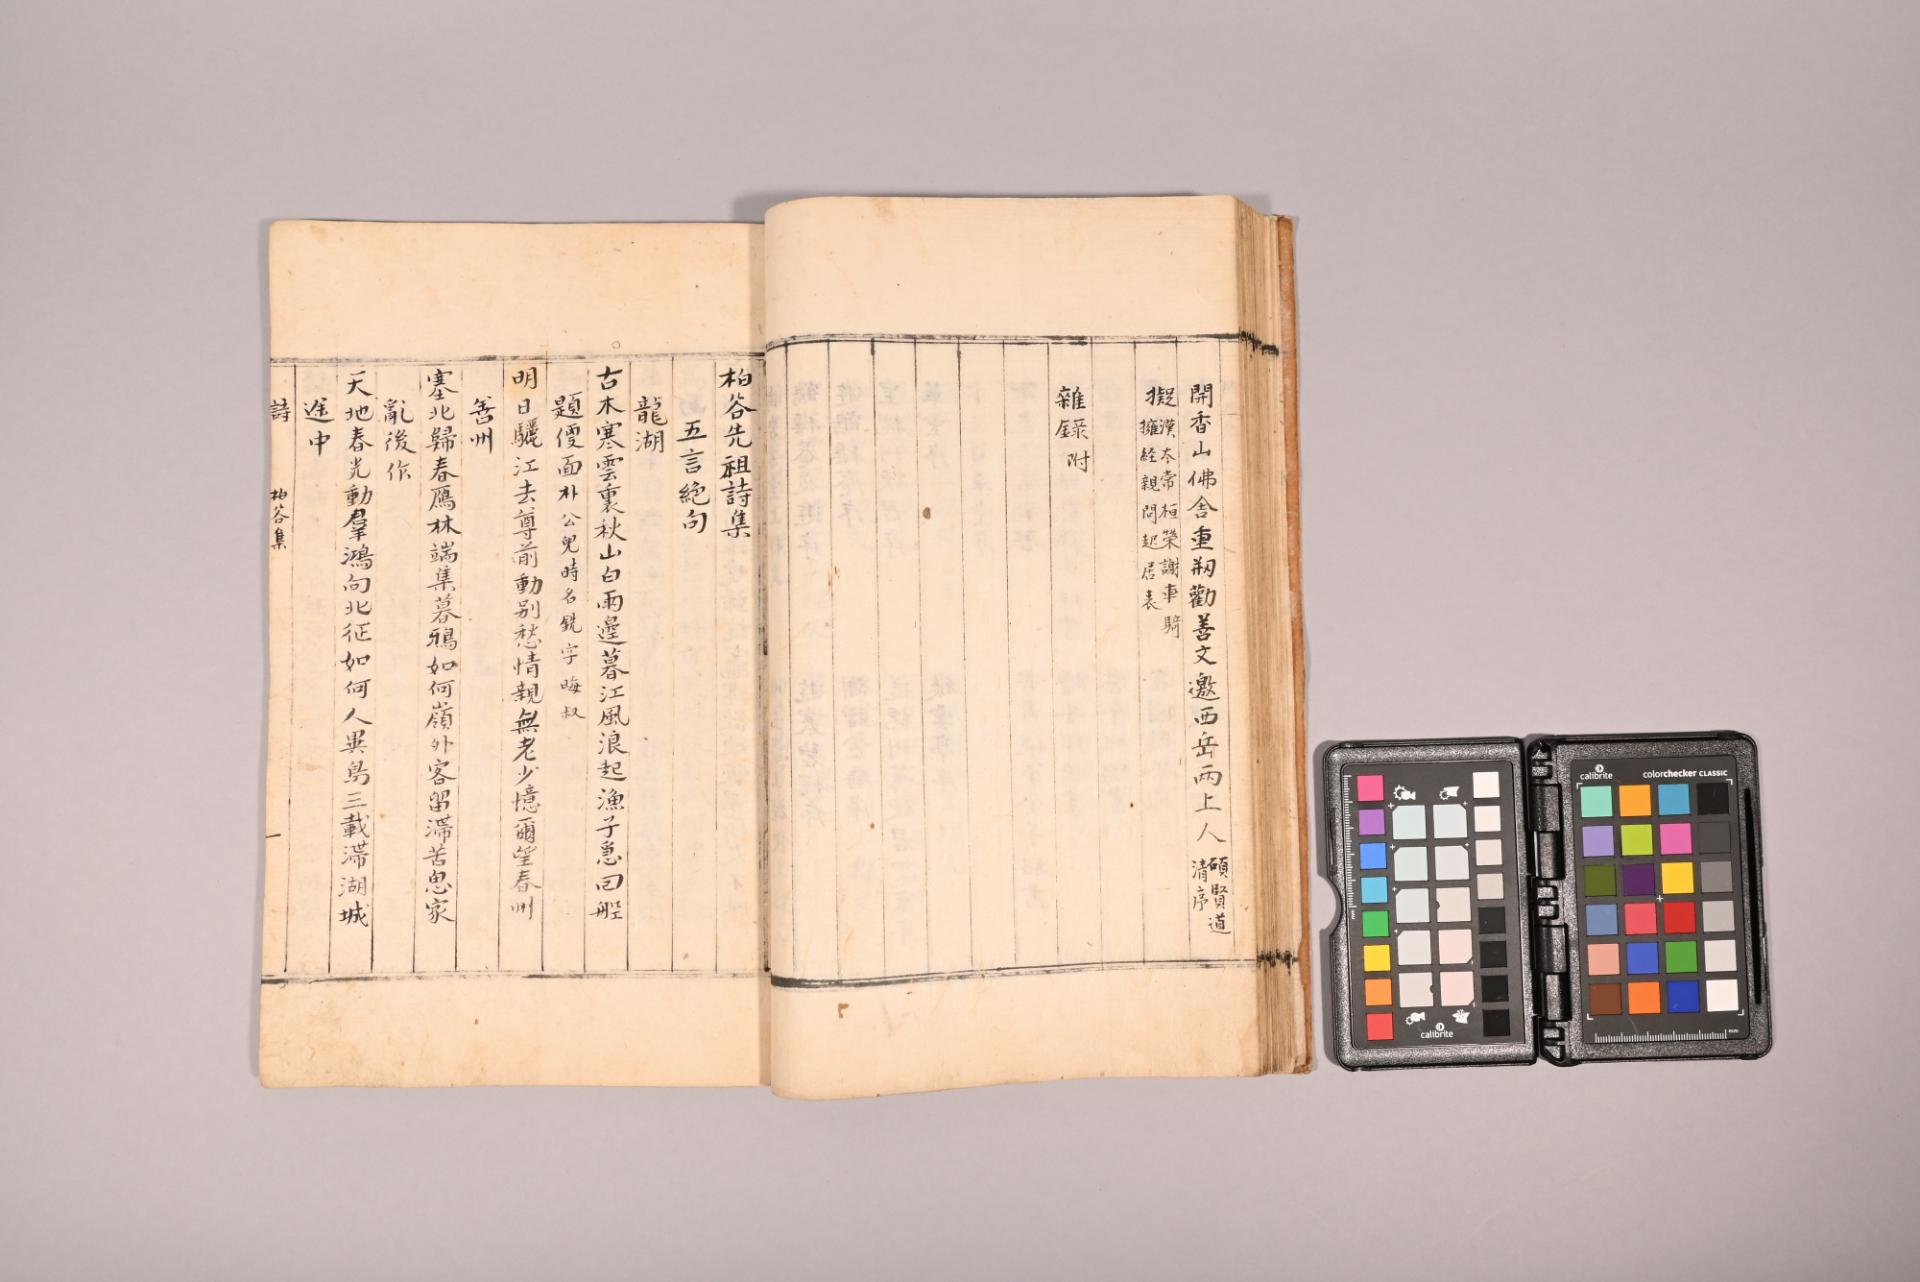 開香山佛舍重剏勸善文邀西岳兩上人碩賢道清序
擬漢太常桓榮謝車騎擁経親問起居表
雜錄附
柏谷先祖詩集
五言絶句
龍湖
古木寒雲裏秋山白雨邊暮江風浪起漁子急回船
題便面朴公兒時名銑字晦叔
明日驪江去尊前動别愁情親無老少憶爾望春州
善州
塞北歸春鴈林端集暮鴉如何嶺外客留滯苦思家
亂後作
天地春光動羣鴻向北征如何人異鳥三載滯湖城
途中
詩
柏谷集
一
calibrite
calibrite
colorchecker CLASSIC
mm